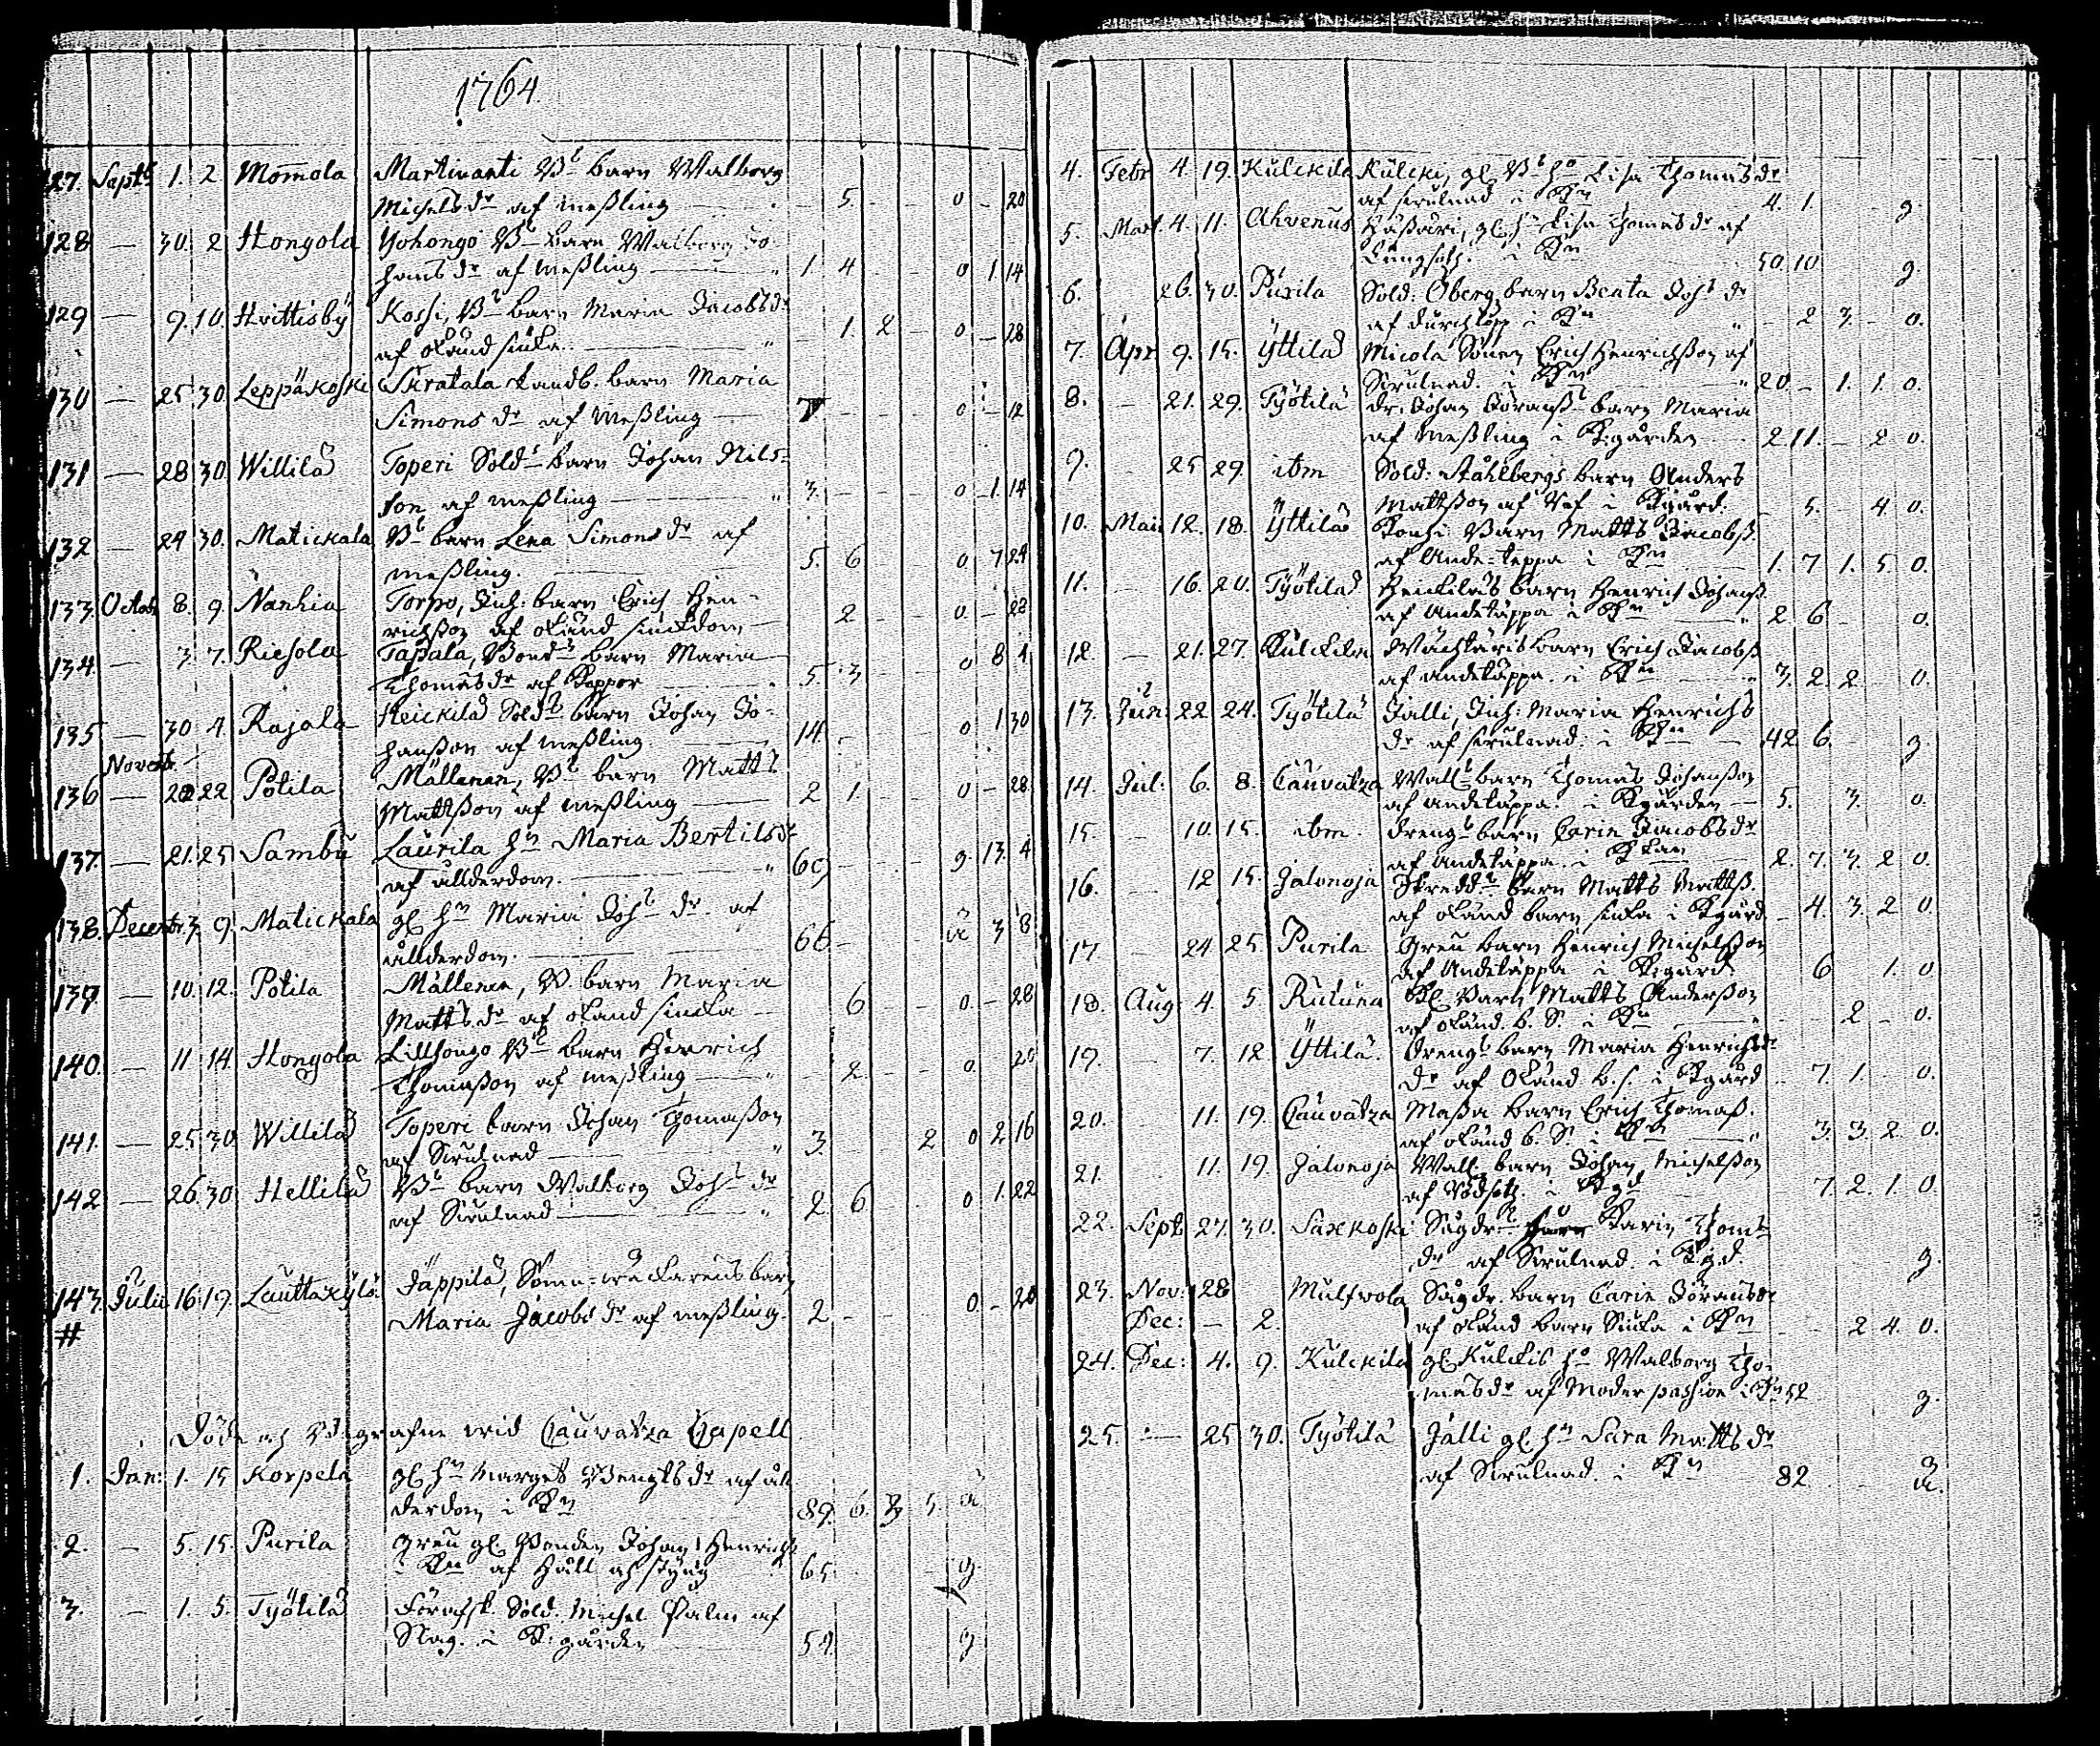 1764.
127. Septb 1. 2 Momola Martivanti Bd barn Walborg
Michelsdr af meßling 5. 0 - 20
128 — 30. 2 Hongola Yohongo Bd barn Walborg Jo-
hansdr af meßling 1. 4 0 1 14
129 — 9. 10. Hvittisbÿ Kossi, Bd barn Maria Jacobsdr
af okänd siuka 1. 2 - 0 - 28
130 — 25 30 Leppäkoski Skratala Landb. barn Maria
Simonsdr af meßling 0 - 12
131 — 28 30. Willilä Toperi Solds barn Johan Nils-
son af meßling 3. 0 - 1. 14
132 — 24 30. Matickala Bd barn Lena Simonsdr af
meßling. 5. 6 0 7 24
133. Octob. 8. 9. Nanhia Torpo, Inh: barn Erich Hen-
richßon af okänd siuckdom 2 0 - 28
134. — 3. 7. Riesola Tapala, Bonds barn Maria
Thomasdr af koppor 5. 3 0 8 4
135 — 30 4. Rajala Heickilä Solds barn Johan Jo-
hanßon af meßling 14. 0 1 30
Novemb.
136 — 20 22 Potila Mällenen, Bd barn Matts
Mattßon af meßling 2 1. 0 - 28
137. — 21. 25 Sambu Laurila hu Maria Bertilsdr
af ållderdom. 69 g. 13. 4
138. Decembr 3. 9. Matickala gl hu Maria Johs dr. af
ållderdom. 66 ä 3 8
139 — 10. 12. Potila Mällenen, B. barn Maria
Matts dr af okänd siucka 6 0 - 28
140. — 11 14. Hongola Lillhongo Bd barn Henrich
Thomaßon af meßling 2. 0. 20
141. — 25. 30 Willilä Toperi barn Johan Thomaßon
af Strulnad 3. 2 0 2 16
142 — 26 30 Hellilä Bd barn Walborg Johs dr
af Strulnad 2. 6. 0 1. 22
143. Julii 16 19. Lauttakÿlä Jäppilä, barn
# Maria Jacobs dr af meßling. 2 0 - 20
Döde och Begrafne wid Cauvatza Capell
1. Jan: 1. 15 Korpela gl hu Marget Bengtsdr af åll
derdom i Kn 89. 6. 3 5. ä
2. — 5. 15. Purila Greu gl. Bonden Johan Henrichs
i Kn af håll och styng 65. g.
3. — 1. 5. Työtilä Förafsk. Sold. Michel Palm af
Slag. i K:gården 59. g
4. Febr 4. 19. Kulckila Kulcki, gl. Bd hu Lisa Thomasdr
af strulnad i Kn 4. 1. g.
5. Mart. 4. 11. Ahvenus Haßari, gl. hu Lisa Thomasdr af
Lungsoht. i Kn 50 10 g.
6. 26. 30. Purila Sold: Öberg barn Beata Johs dr
af durchlopp i Kn - 2 3. - 0.
7. Apr 9. 15. Yttilä Micola Sonen Erich Henrichßon af
Strulnad. i Kn 20 - 1. 1. 0.
8. — 21. 29. Työtilä dr: Johan Joranß barn Maria
af meßling i K:gården 2 11. - 2 0.
9. — 25 29. ibm Sold: Ståhlbergs barn Anders
Mattßon af i Kgård. 5. - 4 0.
10. Maii 12. 18. Yttilä barn Matts Jacobß.
af Ande-teppa i Kn 1. 7 1. 5 0.
11. — 16. 20. Työtilä Heickiläs barn Henrich Johanß
af Andetäppa i Kn 2 6 0.
12. — 21. 27. Kulckila Wächtäris barn Erich Jacobß
af andetäppa. i Kn 3. 2. 2. 0.
13. Jun: 22 24. Työtilä Jalli, Inh: Maria Henrichs
dr af strulnad. i Kn 42 6. g.
14. Jul: 6. 8. Cauvatza Walls barn Thomas Johanßon
af andetäppa. i Kgården 5. 3. 0.
15. — 10. 15. ibm. drengs barn Carin Jacobsdr
af Andetäppa. i 2. 7. 3. 2 0.
16. — 12 15. Jalonoja Skredds barn Matts Mattß.
af okänd barn siuka i Kgård 4. 3. 2 0.
17 — 24 25 Purila Greu barn Henrich Michelßon
af Andetäppa i K:gård. 6 1. 0
18. Aug. 4. 5. Rutuna barn Matts Anderßon
af okänd. b. S. i Kn 2 - 0.
19. — 7. 12 Yttilä. Drengs barn Maria Henrichs
dr af Okänd b. s. i Kgård 7. 1. - 0.
20. 11. 19. Cauvatza Maßa barn Erich Thomaß.
af okänd b. S. i Kn 3. 3. 2. 0.
21. 11. 19 Jalonoja Wall: barn Johan Michelßon
af Rödsot. i Kgd 7. 2. 1. 0.
22. Septb 27. 30. Saxkoski Sågdr. Karin Thoms
dr af Strulnad. i K:gd. g.
23. Nov: 28 Mulfwola Sågdr. barn Carin Joransdr
Dec: — 2. af okänd barn Siuka i Kn 2 4. 0.
24. Dec: 4. 9. Kulckila gl Kulckis hu Walborg Tho-
masdr af Moder passion i Kn 52 g.
25. — 25 30. Työtilä Jalli gl. hu Sara Matts dr
af Strulnad. i Kn 82 ä.